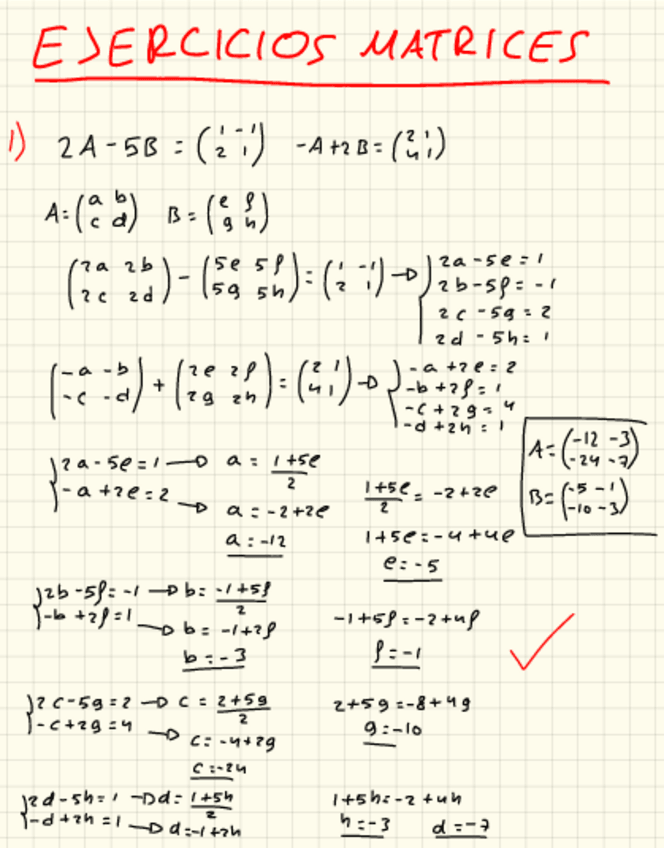 EJERCICIOS MATRICES
1) 2A - 5B = (1 -1 / 2 1) -A + 2B = (2 1 / 4 1)
A = (a b / c d) B = (e f / g h)
(2a 2b / 2c 2d) - (5e 5f / 5g 5h) = (1 -1 / 2 1) → { 2a - 5e = 1
2b - 5f = -1
2c - 5g = 2
2d - 5h = 1
(-a -b / -c -d) + (2e 2f / 2g 2h) = (2 1 / 4 1) → { -a + 2e = 2
-b + 2f = 1
-c + 2g = 4
-d + 2h = 1
A = (-12 -3 / -24 -7)
B = (-5 -1 / -10 -3)
{ 2a - 5e = 1 → a = (1+5e)/2
-a + 2e = 2 → a = -2+2e
a = -12
(1+5e)/2 = -2+2e
1+5e = -4+4e
e = -5
{ 2b - 5f = -1 → b = (-1+5f)/2
-b + 2f = 1 → b = -1+2f
b = -3
-1+5f = -2+4f
f = -1
{ 2c - 5g = 2 → c = (2+5g)/2
-c + 2g = 4 → c = -4+2g
c = -24
2+5g = -8+4g
g = -10
{ 2d - 5h = 1 → d = (1+5h)/2
-d + 2h = 1 → d = -1+2h
1+5h = -2+4h
h = -3 d = -7